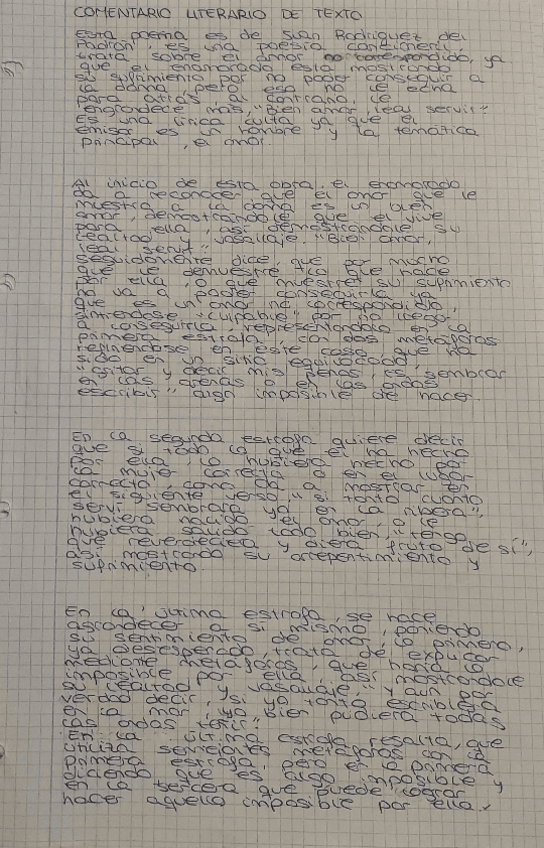 COMENTARIO LITERARIO DE TEXTO
Este poema es de Juan Rodriguez del
Padrón, es una poesía cancioneril
trata sobre el amor no correspondido, ya
que el enamorado esta mostrando
su sufrimiento por no poder conseguir a
la donna, pero eso no le echa
para atrás, al contrario, le
engrandece más, "Bien amor, leal servir".
Es una lírica culta ya que el
emisor es un hombre y la temática
principal, el amor.
Al inicio de esta obra, el enamorado
da a reconocer que el amor que le
muestra a la donna es un buen
amor, demostrandole que el vive
para ella, asi demostrandole su
lealtad y vasallaje, "Bien amar,
leal servir".
Seguidamente dice, que por mucho
que le demuestre lo que hace
por ella, o que muestre su sufrimiento
no va a poder conseguirla, ya
que es un amor no correspondido,
sintiendose "culpable" por no llegar
a conseguirla, representandolo en la
primera estrofa, con dos metáforas
refiriendose en este caso que ha
sido en un sitio equivocado,
"gritar y decir mis penas, es sembrar
en las arenas o en las ondas
escribir" algo imposible de hacer.
En la segunda estrofa quiere decir
que si todo lo que el ha hecho
por ella, lo hubiera hecho por
la mujer correcta o en el lugar
correcto, como da a mostrar en
el siguiente verso "si tanto cuanto
serví sembrara yo en la ribera",
hubiera nacido el amor, o le
hubiera salido todo bien, "tengo
que reverdeciera y diera fruto de sí",
asi mostrando su arrepentimiento y
sufrimiento.
En la última estrofa, se hace
a si mismo, poniendo
su sentimiento de amor lo primero,
ya desesperado, trata de explicar
mediante metáforas, que haría lo
imposible por ella, asi mostrandole
su lealtad y vasallaje, "y aun por
verdad decir, si yo tanto escribiera
en la mar, yo bien pudiera todas
las ondas teñir".
En la última estrofa resalta, que
utiliza semejantes metáforas con la
primera estrofa, pero en la primera
diciendo que es algo imposible y
en la tercera que puede lograr y
hacer aquello imposible por ella.